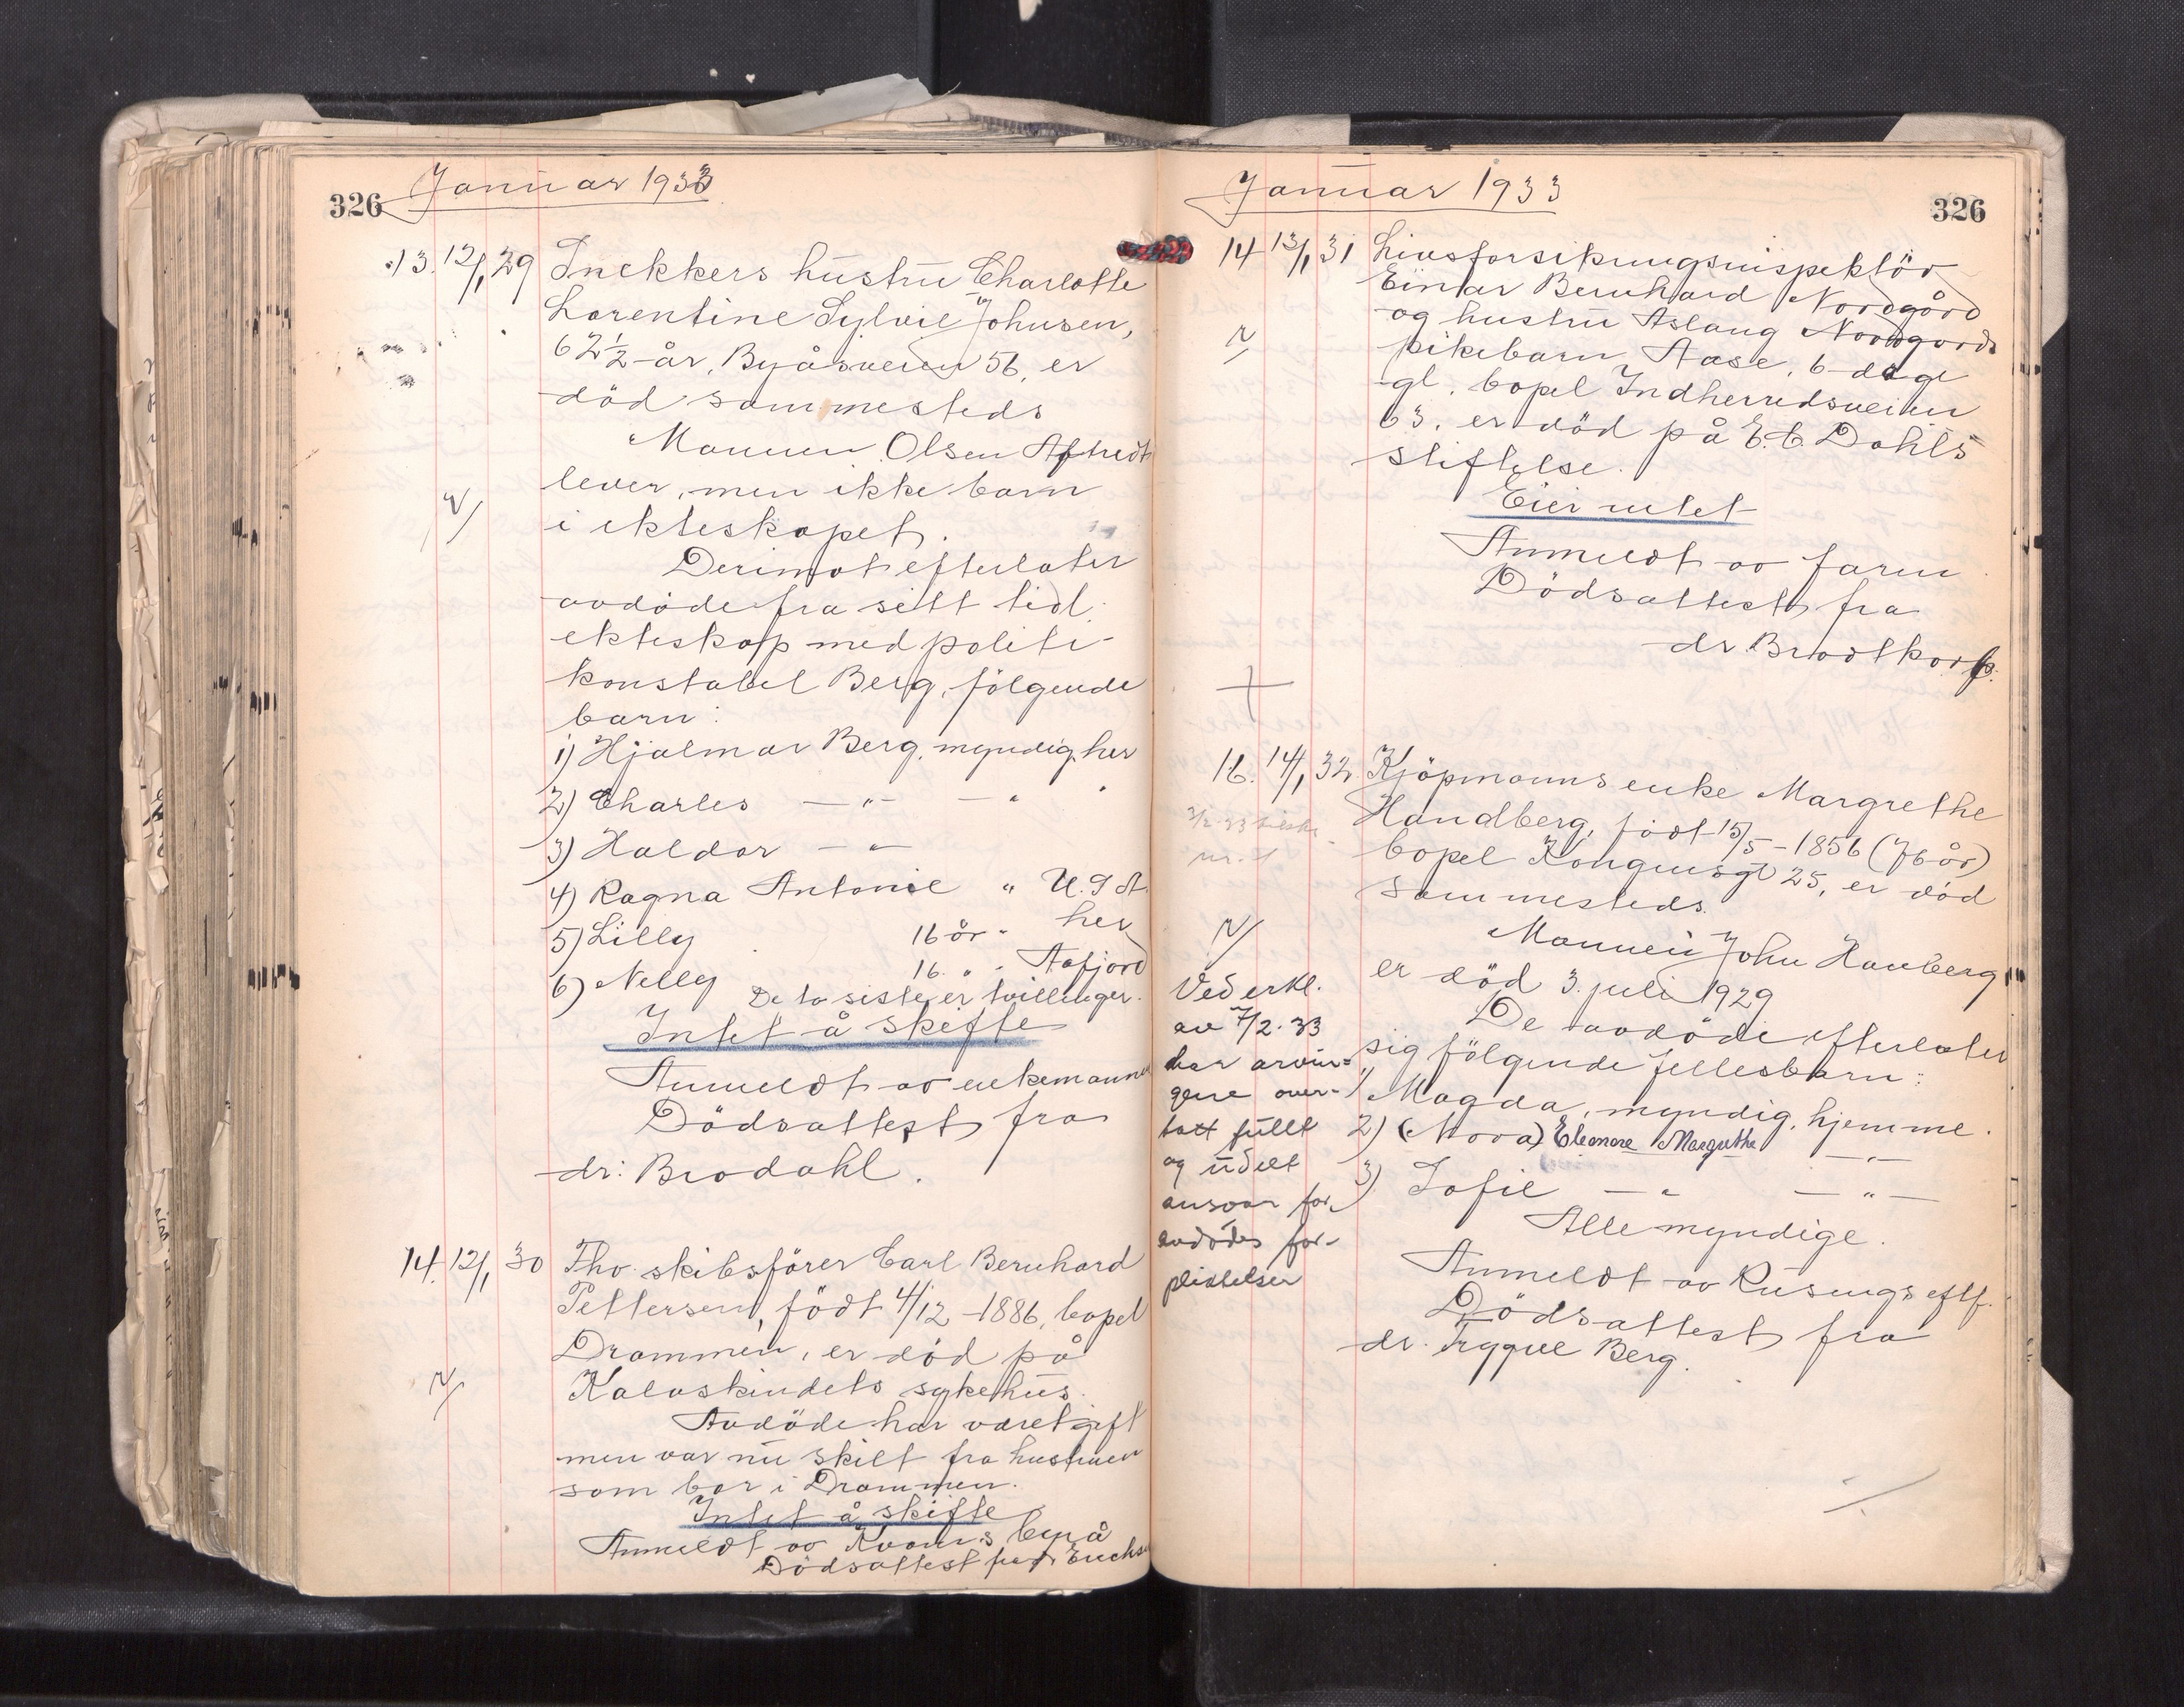 326
Januar 1933
13. 12/1 29 Snekkers hustru Charlotte
Lorentine Sylvie Johnsen,
62½ år, Byåsveien 56, er
död sammesteds
Mannen Olsen
lever, men ikke barn
i ekteskapet.
Derimot efterlater
avdöde fra sitt tidl.
ekteskap med politi-
konstabel Berg, fölgende
barn:
1) Hjalmar Berg, myndig, her
2) Charles —"— —"
3) Haldor —"—
4) Ragna Antonie " U.S.A.
5) Lilly 16 år " her
6) Nelly 16 " " Aafjord
De to siste er tvillinger.
Intet å skifte
Anmeldt av enkemannen
Dödsattest fra
dr. Brodahl.
14. 12/1 30 Fhv. skibsförer Carl Bernhard
Pettersen, födt 4/12-1886, bopel
Drammen, er död på
Kalvskindets sykehus.
Avdöde har været gift
men var nu skilt fra hustruen
som bor i Drammen.
Intet å skifte
Anmeldt av Kvams byrå
Dödsattest fra dr Erichsen
Januar 1933
326
14 13/1 31 Livsforsikringsinspektör
Einar Bernhard Nordgård
og hustru Aslaug Nordgårds
pikebarn Aase, 6 dage
gl. bopel Indherredsveien
63, er död på E. C. Dahls
stiftelse.
Eier intet
Anmeldt av faren
Dödsattest fra
dr Brodtkorb.
16. 14/1 32 Kjöpmanns enke Margrethe
Handberg, födt 15/5-1856 (76 år)
bopel Kongensgt 25, er död
sammesteds.
Mannen John Hanberg
er död 3. juli 1929
De avdöde efterlater
sig fölgende fellesbarn:
1) Magda, myndig, hjemme.
2) (Mova) Eleonore Margrethe —"—
3) Sofie —"— —"—
Alle myndige.
Anmeldt av Rusungs eftf.
Dödsattest fra
dr. Trygve Berg.
Ved erkl.
av 7/2.33
har arvin-
gene over-
tatt fullt
og udelt
ansvar for
avdödes for-
pliktelser